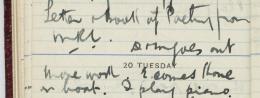 Letter & book of Poetry from
W.K.L.
D & M goes out
20 TUESDAY
More work E comes home
in boat. I play piano.